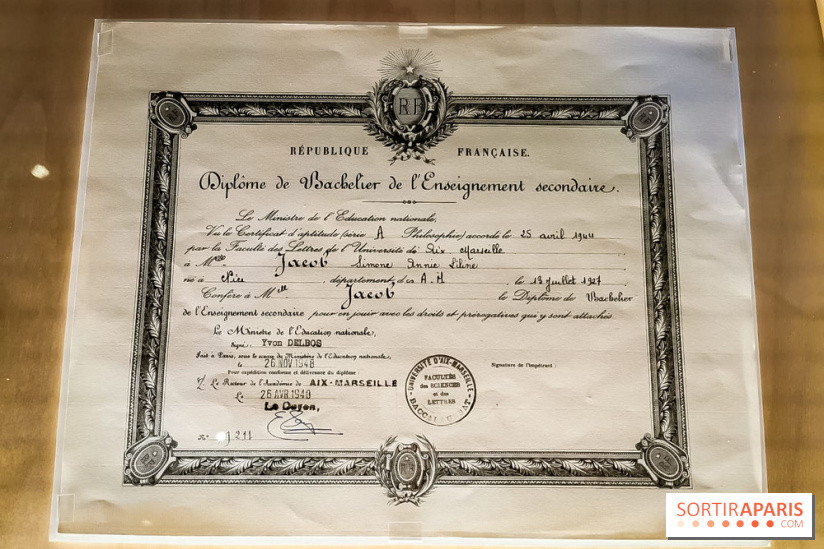 RF
RÉPUBLIQUE FRANÇAISE.
Diplôme de Bachelier de l'Enseignement secondaire.
Le Ministre de l'Education nationale,
Vu le Certificat d'aptitude (série A Philosophie) accordé le 25 avril 1944
par la Faculté des Lettres de l'Université de Aix Marseille
à Mlle Jacob Simone Annie Liline
né à Nice, département des A.M, le 13 juillet 1927
Confère à Mlle Jacob le Diplôme de Bachelier
de l'Enseignement secondaire pour en jouir avec les droits et prérogatives qui y sont attachés.
Le Ministre de l'Education nationale,
Signé: Yvon DELBOS
Fait à Paris, sous le sceau du Ministère de l'Education nationale,
le 26 NOV 1948
Pour expédition conforme et délivrance du diplôme:
Signature de l'impétrant:
P/ Le Recteur de l'Académie de AIX-MARSEILLE
Le 26 AVR 1949
Le Doyen,
N° 211
UNIVERSITÉ D'AIX-MARSEILLE
FACULTÉS
des SCIENCES
et des
LETTRES
BACCALAURÉAT
SORTIRAPARIS
.COM